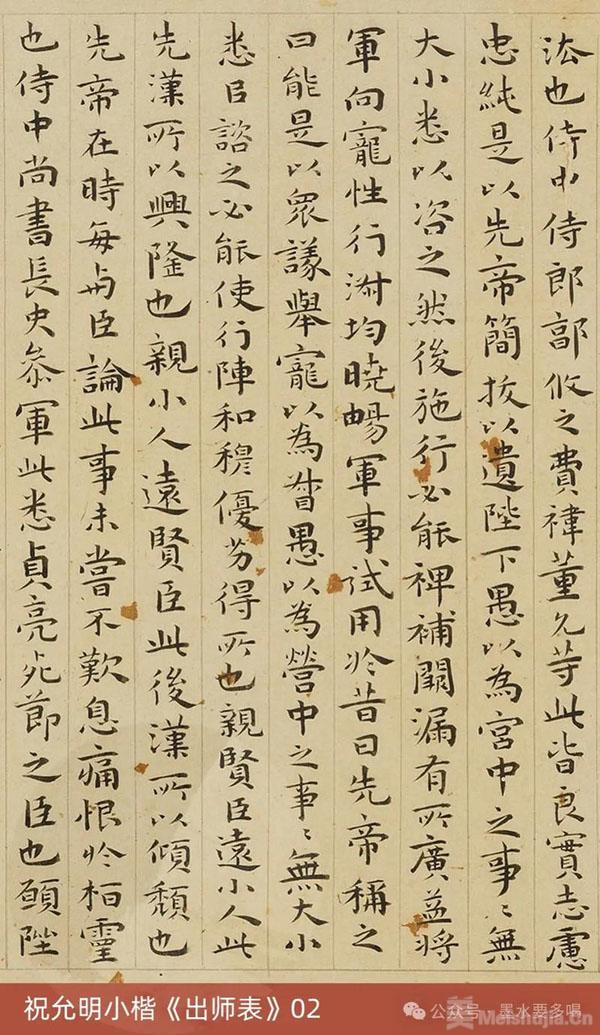 法也侍中侍郎郭攸之費禕董允等此皆良實志慮
忠純是以先帝簡拔以遺陛下愚以為宮中之事〻無
大小悉以咨之然後施行必能裨補闕漏有所廣益將
軍向寵性行淑均曉暢軍事試用於昔日先帝稱之
曰能是以眾議舉寵以為督愚以為營中之事〻無大小
悉以諮之必能使行陣和穆優劣得所也親賢臣遠小人此
先漢所以興隆也親小人遠賢臣此後漢所以傾頹也
先帝在時每與臣論此事未嘗不歎息痛恨於桓靈
也侍中尚書長史參軍此悉貞亮死節之臣也願陛
祝允明小楷《出师表》02
公众号 · 墨水要多喝
Meishujia.Cn